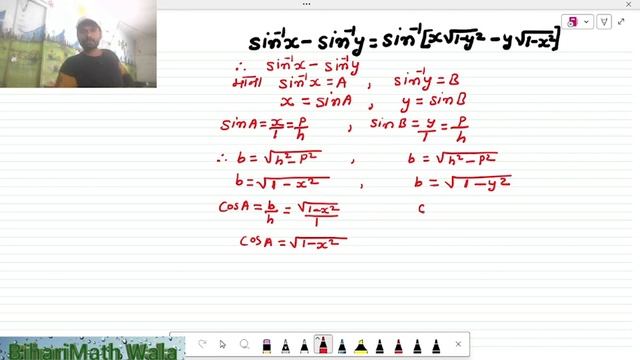 sin⁻¹x − sin⁻¹y = sin⁻¹[x√1−y² − y√1−x²]
∴ sin⁻¹x − sin⁻¹y
माना sin⁻¹x = A , sin⁻¹y = B
x = sinA , y = sinB
sinA = x/1 = P/h , sinB = y/1 = P/h
∴ b = √h²−P² , b = √h²−P²
b = √1−x² , b = √1−y²
cosA = b/h = √1−x²/1 C
cosA = √1−x²
BihariMath Wala